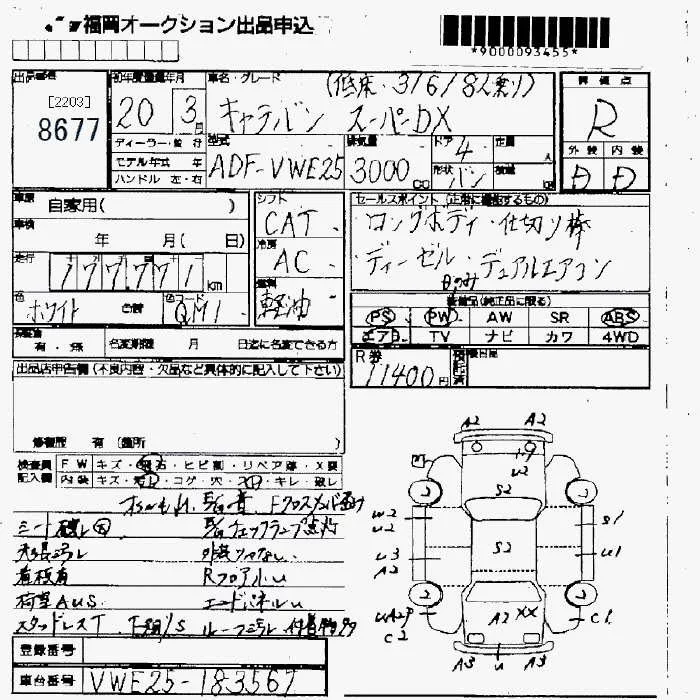 福岡オークション出品申込
*9000093455*
出品番号
[2203]
8677
初年度登録年月
20 3月
ディーラー・並行
モデル年式 年
ハンドル 左・右
車名・グレード
(低床・3/6/8人乗り)
キャラバン スーパーDX
型式
ADF-VWE25
排気量
3000 CC
ドア 4
形状 バン
定員 人
積載
評価点
R
外装 内装
D D
車歴
自家用( )
車検
年 月(日)
走行
177771 km
色
ホワイト
色替
色コード
QM1
シフト
CAT
冷房
AC
燃料
軽油
セールスポイント(正常に機能するもの)
ロングボディ・仕切り棒
ディーゼル・デュアルエアコン
装備品(純正品に限る)
PS PW AW SR ABS
エアB TV ナビ カワ 4WD
有・無
名変期限 月 日迄に名変できる方
R券
11400円
預託済
出品店申告欄(不良内容・欠品など具体的に記入して下さい)
修復歴 有(箇所 )
検査員記入欄
FW キズ・飛石・ヒビ割・リペア跡・X要
内装 キズ・汚レ・コゲ・穴・凹・キレ・破レ
シート破レ
チェックランプ点灯
看板有
Rフロア小U
荷室AUS
エンドパネルU
スタッドレスT
登録番号
車台番号
VWE25-183567
A2 A2
U2
S2
W2
U2
S1
S2
U3
A2
U1
A2 XX
C2
C1
A3 U A3